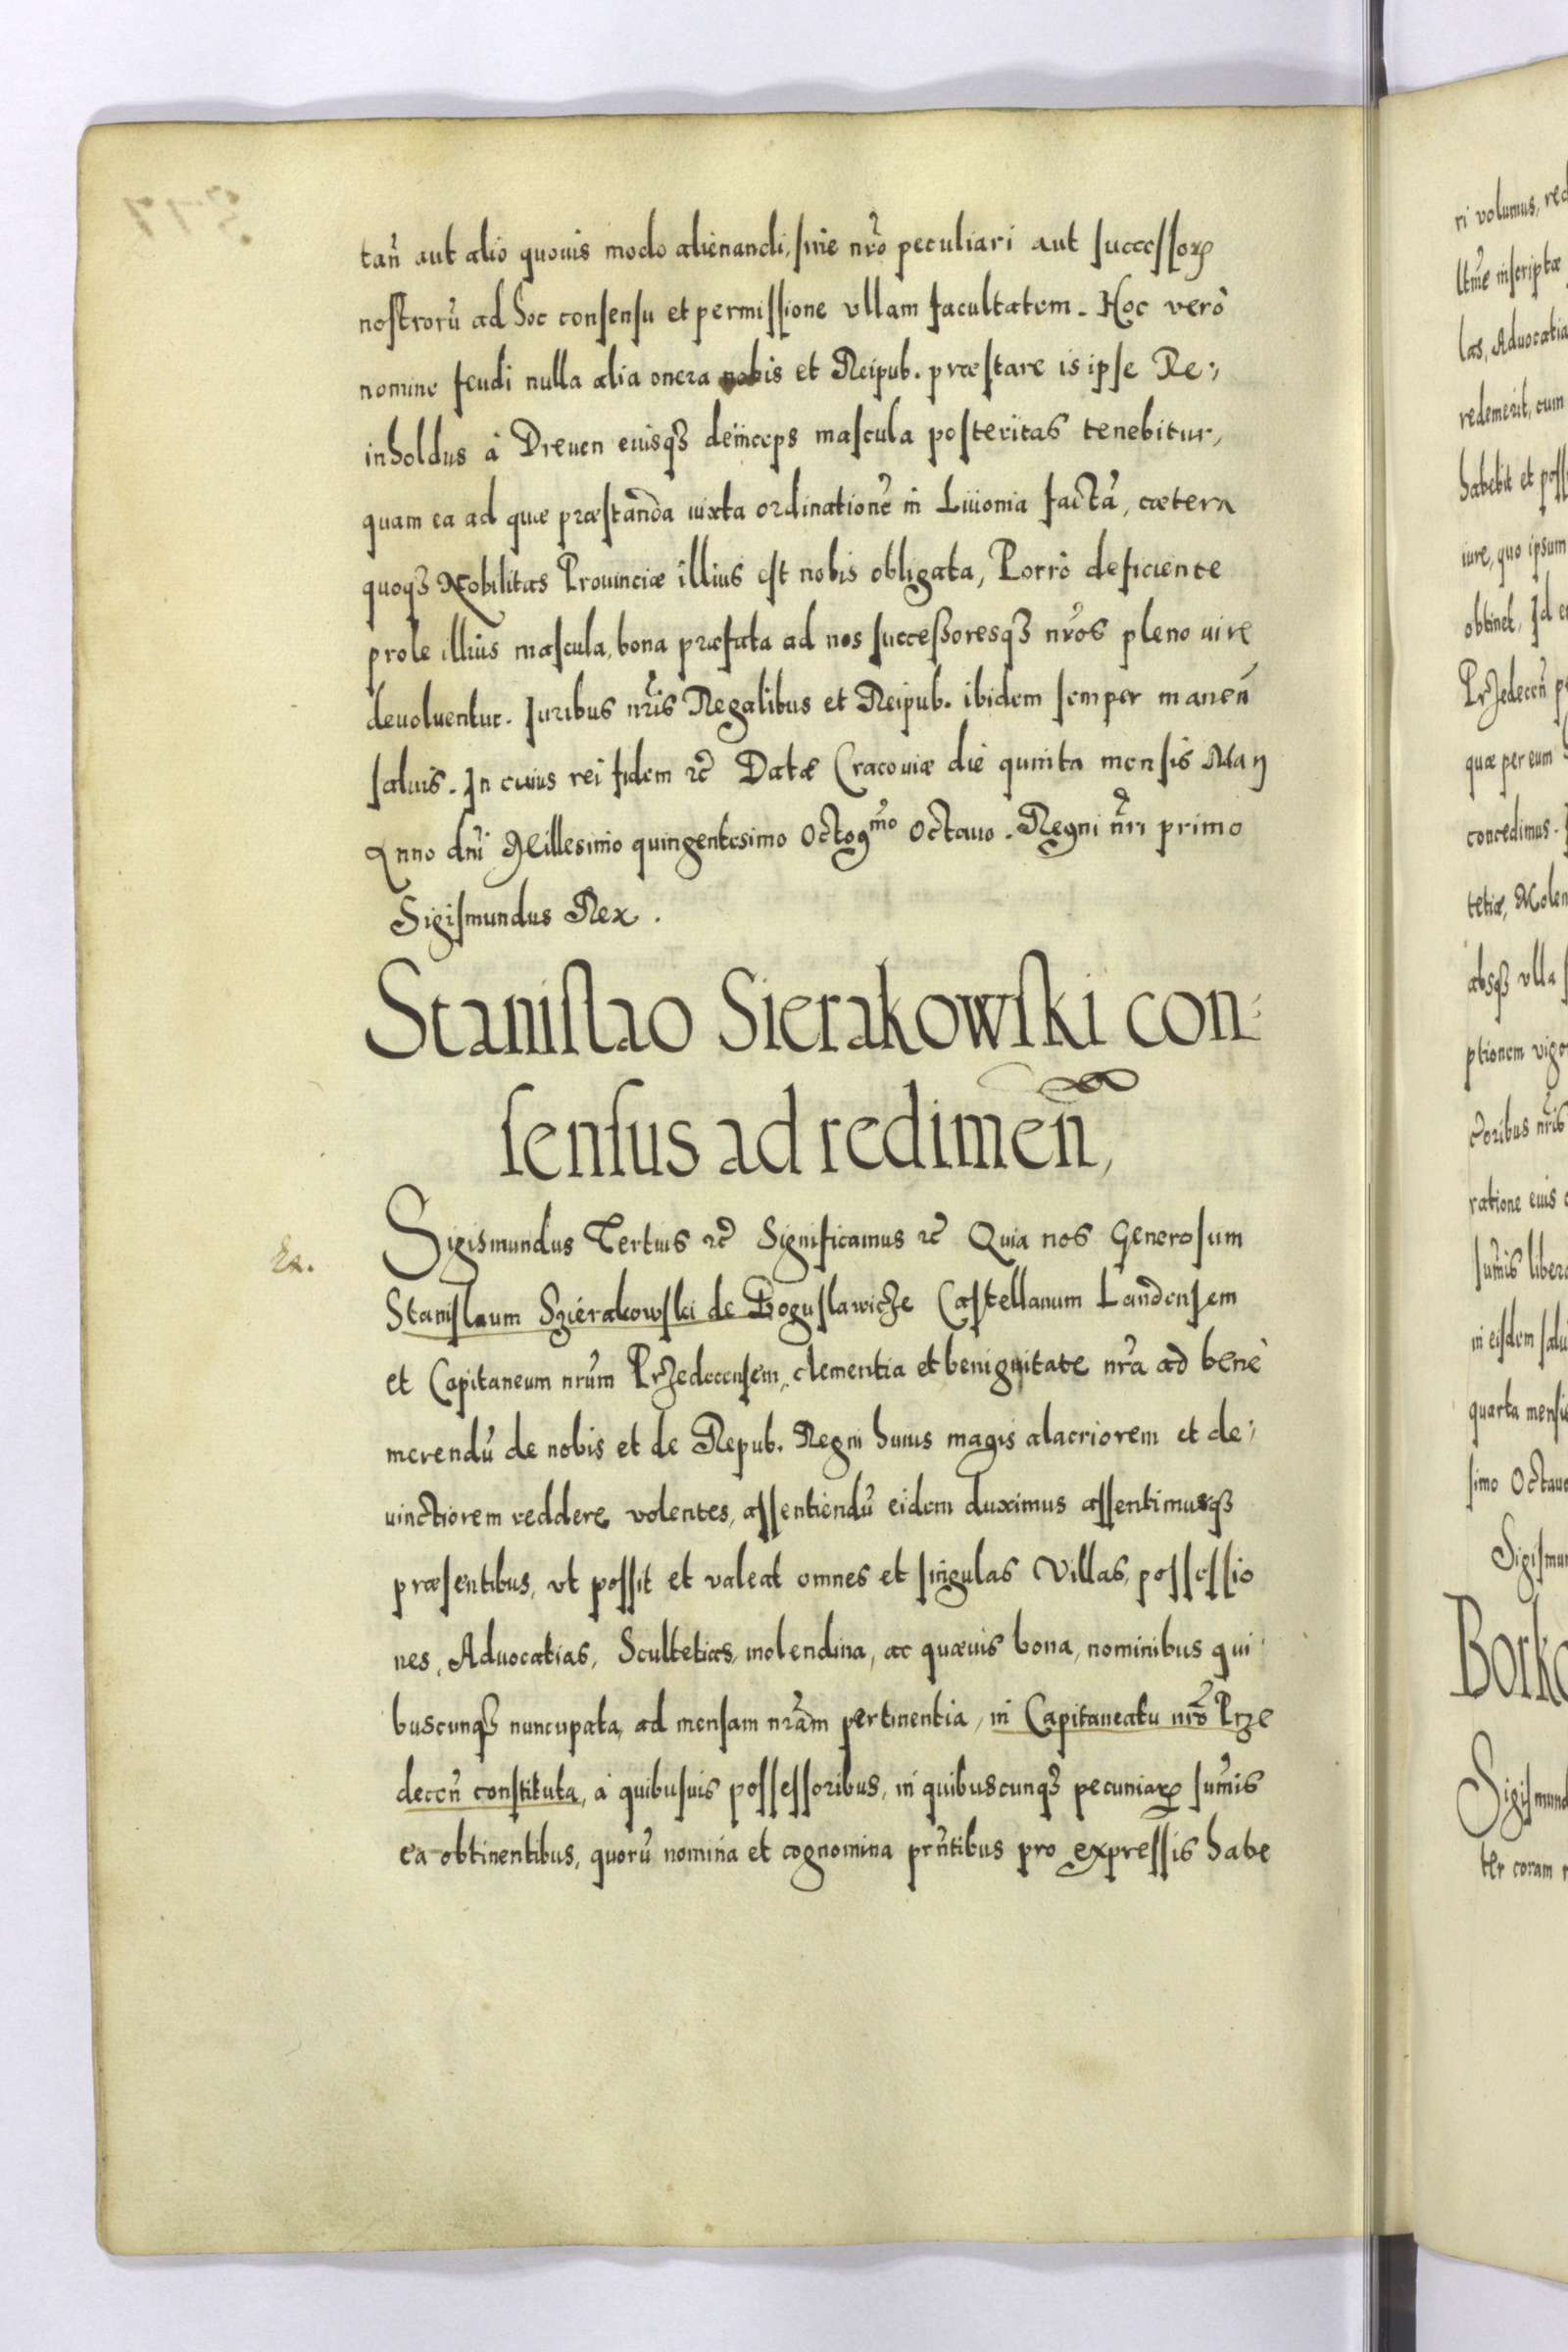 tan̄ aut alio quouis modo alienandi, sine nr̃o peculiari aut successorꝝ
nostrorũ ad hoc consensu et permissione vllam facultatem. Hoc verò
nomine feudi nulla alia onera nobis et Reipub. præstare is ipse Re⸗
inholdus à Dreuen eiusqꝫ deinceps mascula posteritas tenebitur,
quam ea ad quæ præstanda iuxta ordinationẽ in Liuonia factã, cætera
quoqꝫ Nobilitas Prouinciæ illius est nobis obligata, Porrò deficiente
prole illius mascula, bona præfata ad nos successoresqꝫ nr̃os pleno iure
deuoluentur. Juribus nr̃is Regalibus et Reipub. ibidem semper manen̄
saluis. In cuius rei fidem ꝛc̃ Datæ Cracouiæ die quinta mensis Maij
Anno dn̄i Millesimo quingentesimo Octogmo Octauo. Regni nr̃i primo
Sigismundus Rex.
Stanislao Sierakowski con⸗
sensus ad redimen̄,
Sigismundus Tertius ꝛc̃ Significamus ꝛc̃ Quia nos Generosum
Stanislaum Szierakowski de Boguslawicze Castellanum Landensem
et Capitaneum nr̃um Przedecensem, clementia et benignitate nr̃a ad benè
merendũ de nobis et de Repub. Regni huius magis alacriorem et de⸗
uinctiorem reddere volentes, assentiendũ eidem duximus assentimusqꝫ
præsentibus, vt possit et valeat omnes et singulas Villas, possessio
nes, Aduocatias, Scultetias, molendina, ac quæuis bona, nominibus qui
buscunqꝫ nuncupata, ad mensam nr̃am pertinentia, in Capitaneatu nr̃o Prze
decen̄ constituta, à quibusuis possessoribus, in quibuscunqꝫ pecuniarꝝ sum̃is
ea obtinentibus, quorũ nomina et cognomina prn̄tibus pro expressis habe
Ex.
ri volumus,
ltm̃e inscriptæ
las, Aduocatia
redemerit, cum
habebit et
iure, quo ipsum
obtinet, Id
Przedecen̄
quæ per eum
concedimus.
tetiæ,
absqꝫ vlla
ptionem
ctoribus nr̃is
ratione eius
sum̃is
in eisdem
quarta
simo
Sigismun
Borko
Sigismund
ter coram